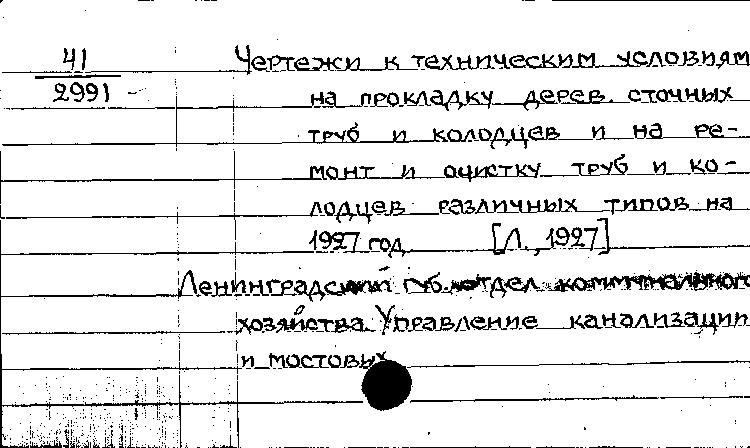 41
2991
Чертежи к техническим условиям
на прокладку дерев. сточных
труб и колодцев и на ре-
монт и очистку труб и ко-
лодцев различных типов на
1927 год. [Л., 1927]
Ленинградский губ. отдел коммунального
хозяйства. Управление канализации
и мостовых